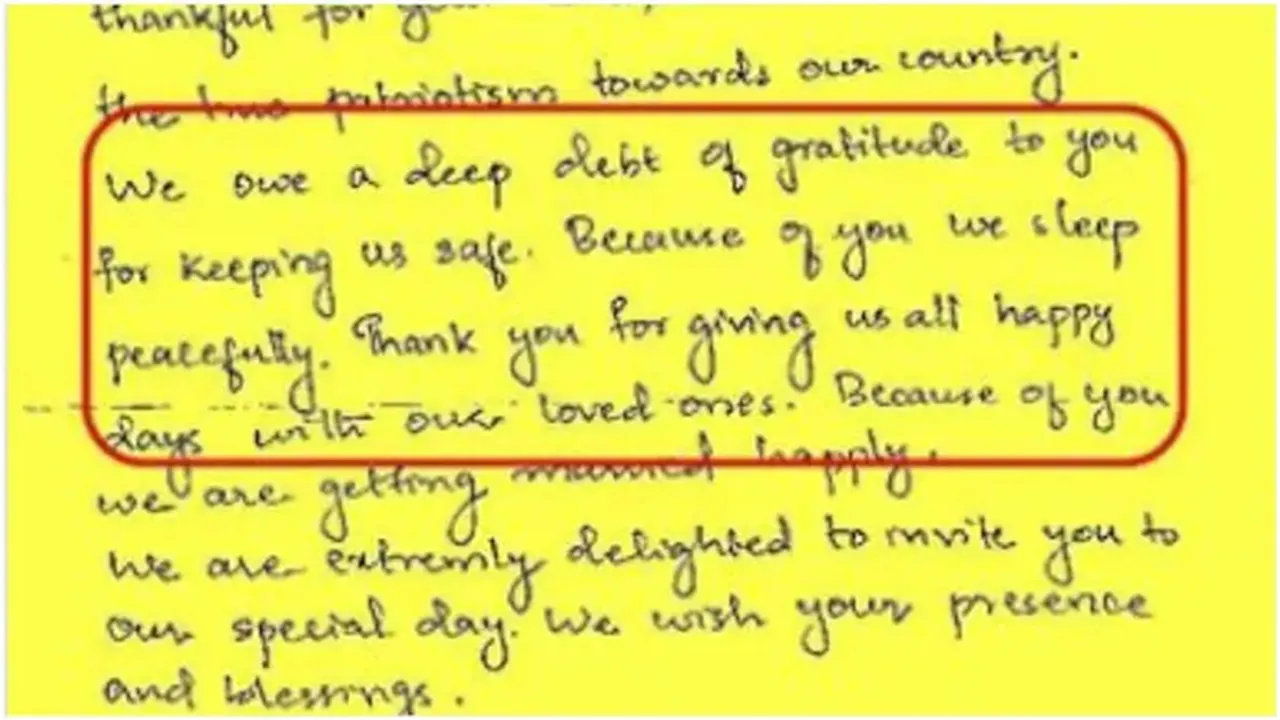 thankful for your
the true patriotism towards our country.
We owe a deep debt of gratitude to you
for keeping us safe. Because of you we sleep
peacefully. Thank you for giving us all happy
days with our loved ones. Because of you
we are getting married happly.
We are extremly delighted to invite you to
our special day. We wish your presence
and blessings.